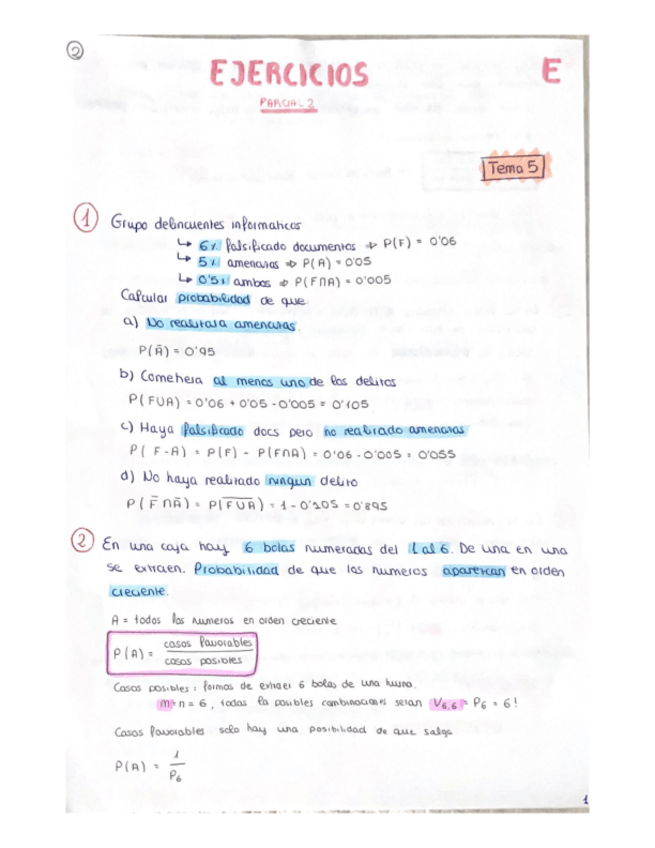 2
EJERCICIOS E
PARCIAL 2
Tema 5
1 Grupo delincuentes informaticos
↳ 6% falsificado documentos ⇒ P(F) = 0'06
↳ 5% amenazas ⇒ P(A) = 0'05
↳ 0'5% ambos ⇒ P(F∩A) = 0'005
Calcular probabilidad de que:
a) No realizara amenazas.
P(Ā) = 0'95
b) Cometiera al menos uno de los delitos
P(FUA) = 0'06 + 0'05 - 0'005 = 0'105
c) Haya falsificado docs pero no realizado amenazas
P( F-A) = P(F) - P(F∩A) = 0'06 - 0'005 = 0'055
d) No haya realizado ningun delito
P(F̄∩Ā) = P(F̅U̅A̅) = 1 - 0'105 = 0'895
2 En una caja hay 6 bolas numeradas del 1 al 6. De una en una
se extraen. Probabilidad de que los numeros aparezcan en orden
creciente.
A = todos los numeros en orden creciente
P(A) = casos favorables / casos posibles
Casos posibles: formas de extraer 6 bolas de una
m=n=6, todas la posibles combinaciones seran V6,6 = P6 = 6!
Casos favorables: solo hay una posibilidad de que salga
P(A) = 1 / P6
1